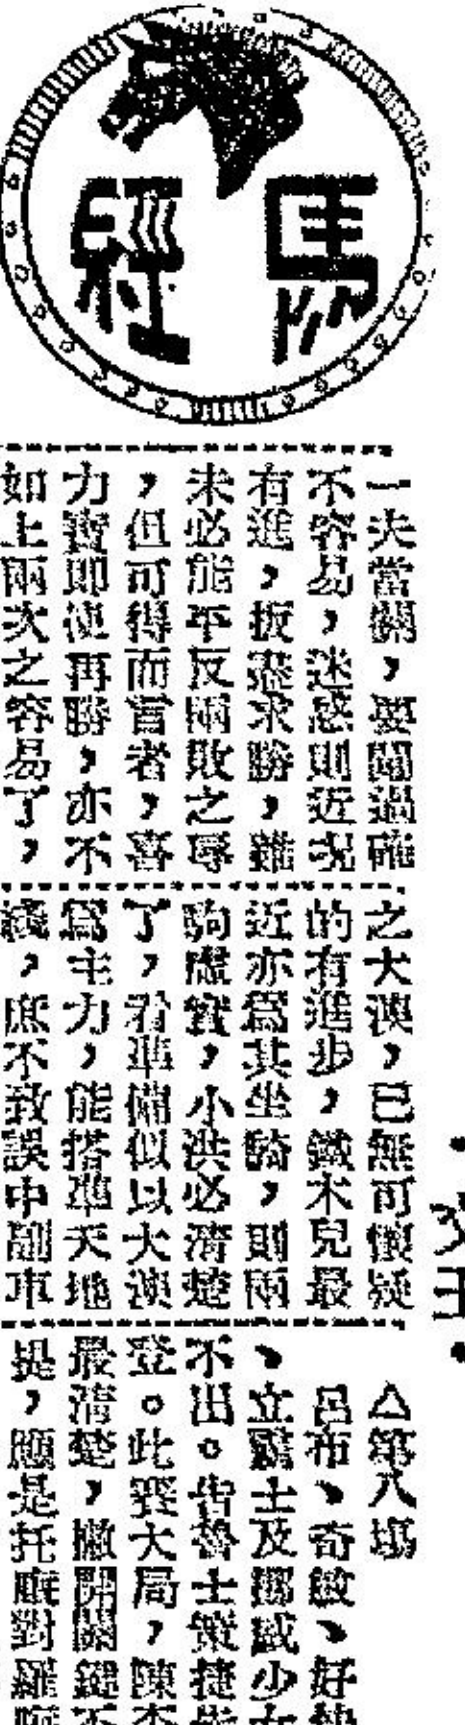 馬經
一夫當關，要闖過確
不容易，迷惑則近況
有進，扳盡求勝，雖
未必能平反兩敗之辱
，但可得而言者，喜
力寶即使再勝，亦不
如上兩次之容易了，
之大漠，已無可懷疑
的有進步，鐵木兒最
近亦爲其坐騎，則兩
駒虛實，小洪必清楚
了，看準備似以大漠
爲主力，能搭準天地
綫，庶不致誤中副車
△第八塲
呂布、奇敏、好
、立露士及挪威少
不出。告魯士策捷
登。此賽大局，陳
最清楚，撇開關鍵不
提，應是托 對羅